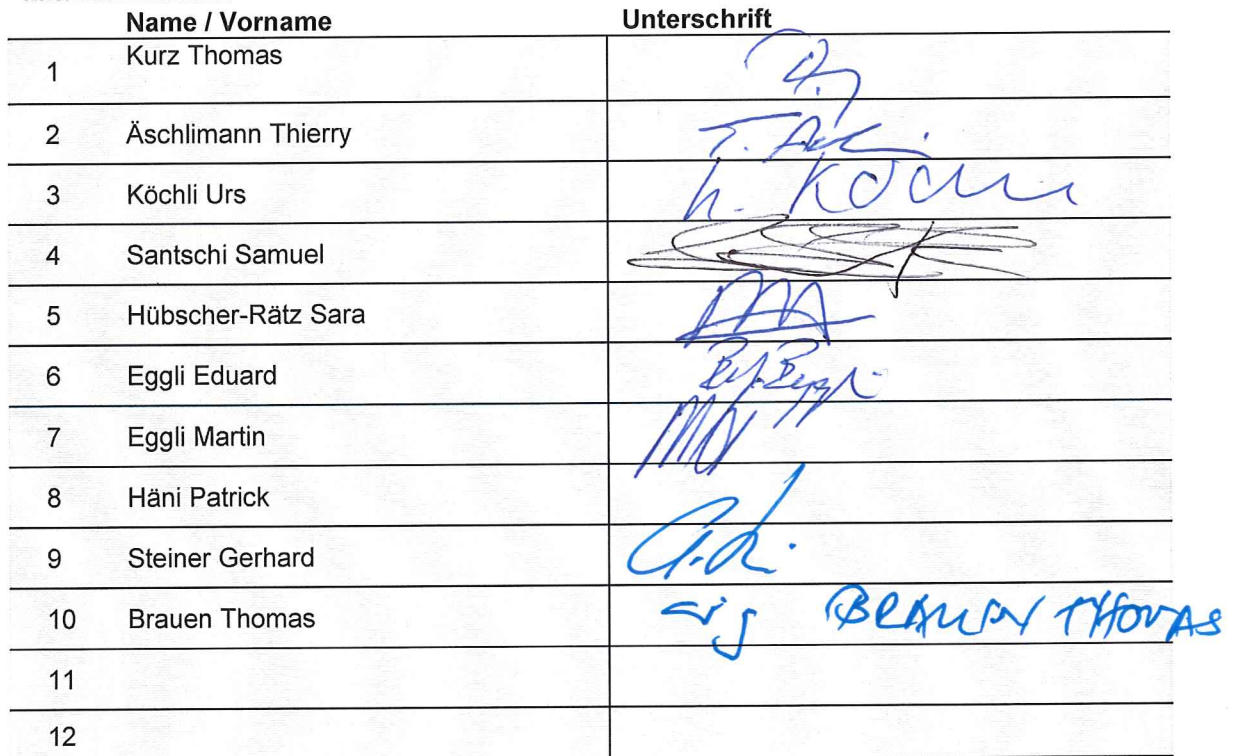 Name / Vorname Unterschrift
1 Kurz Thomas
2 Äschlimann Thierry
3 Köchli Urs
4 Santschi Samuel
5 Hübscher-Rätz Sara
6 Eggli Eduard
7 Eggli Martin
8 Häni Patrick
9 Steiner Gerhard
10 Brauen Thomas sig BRAUEN THOMAS
11
12